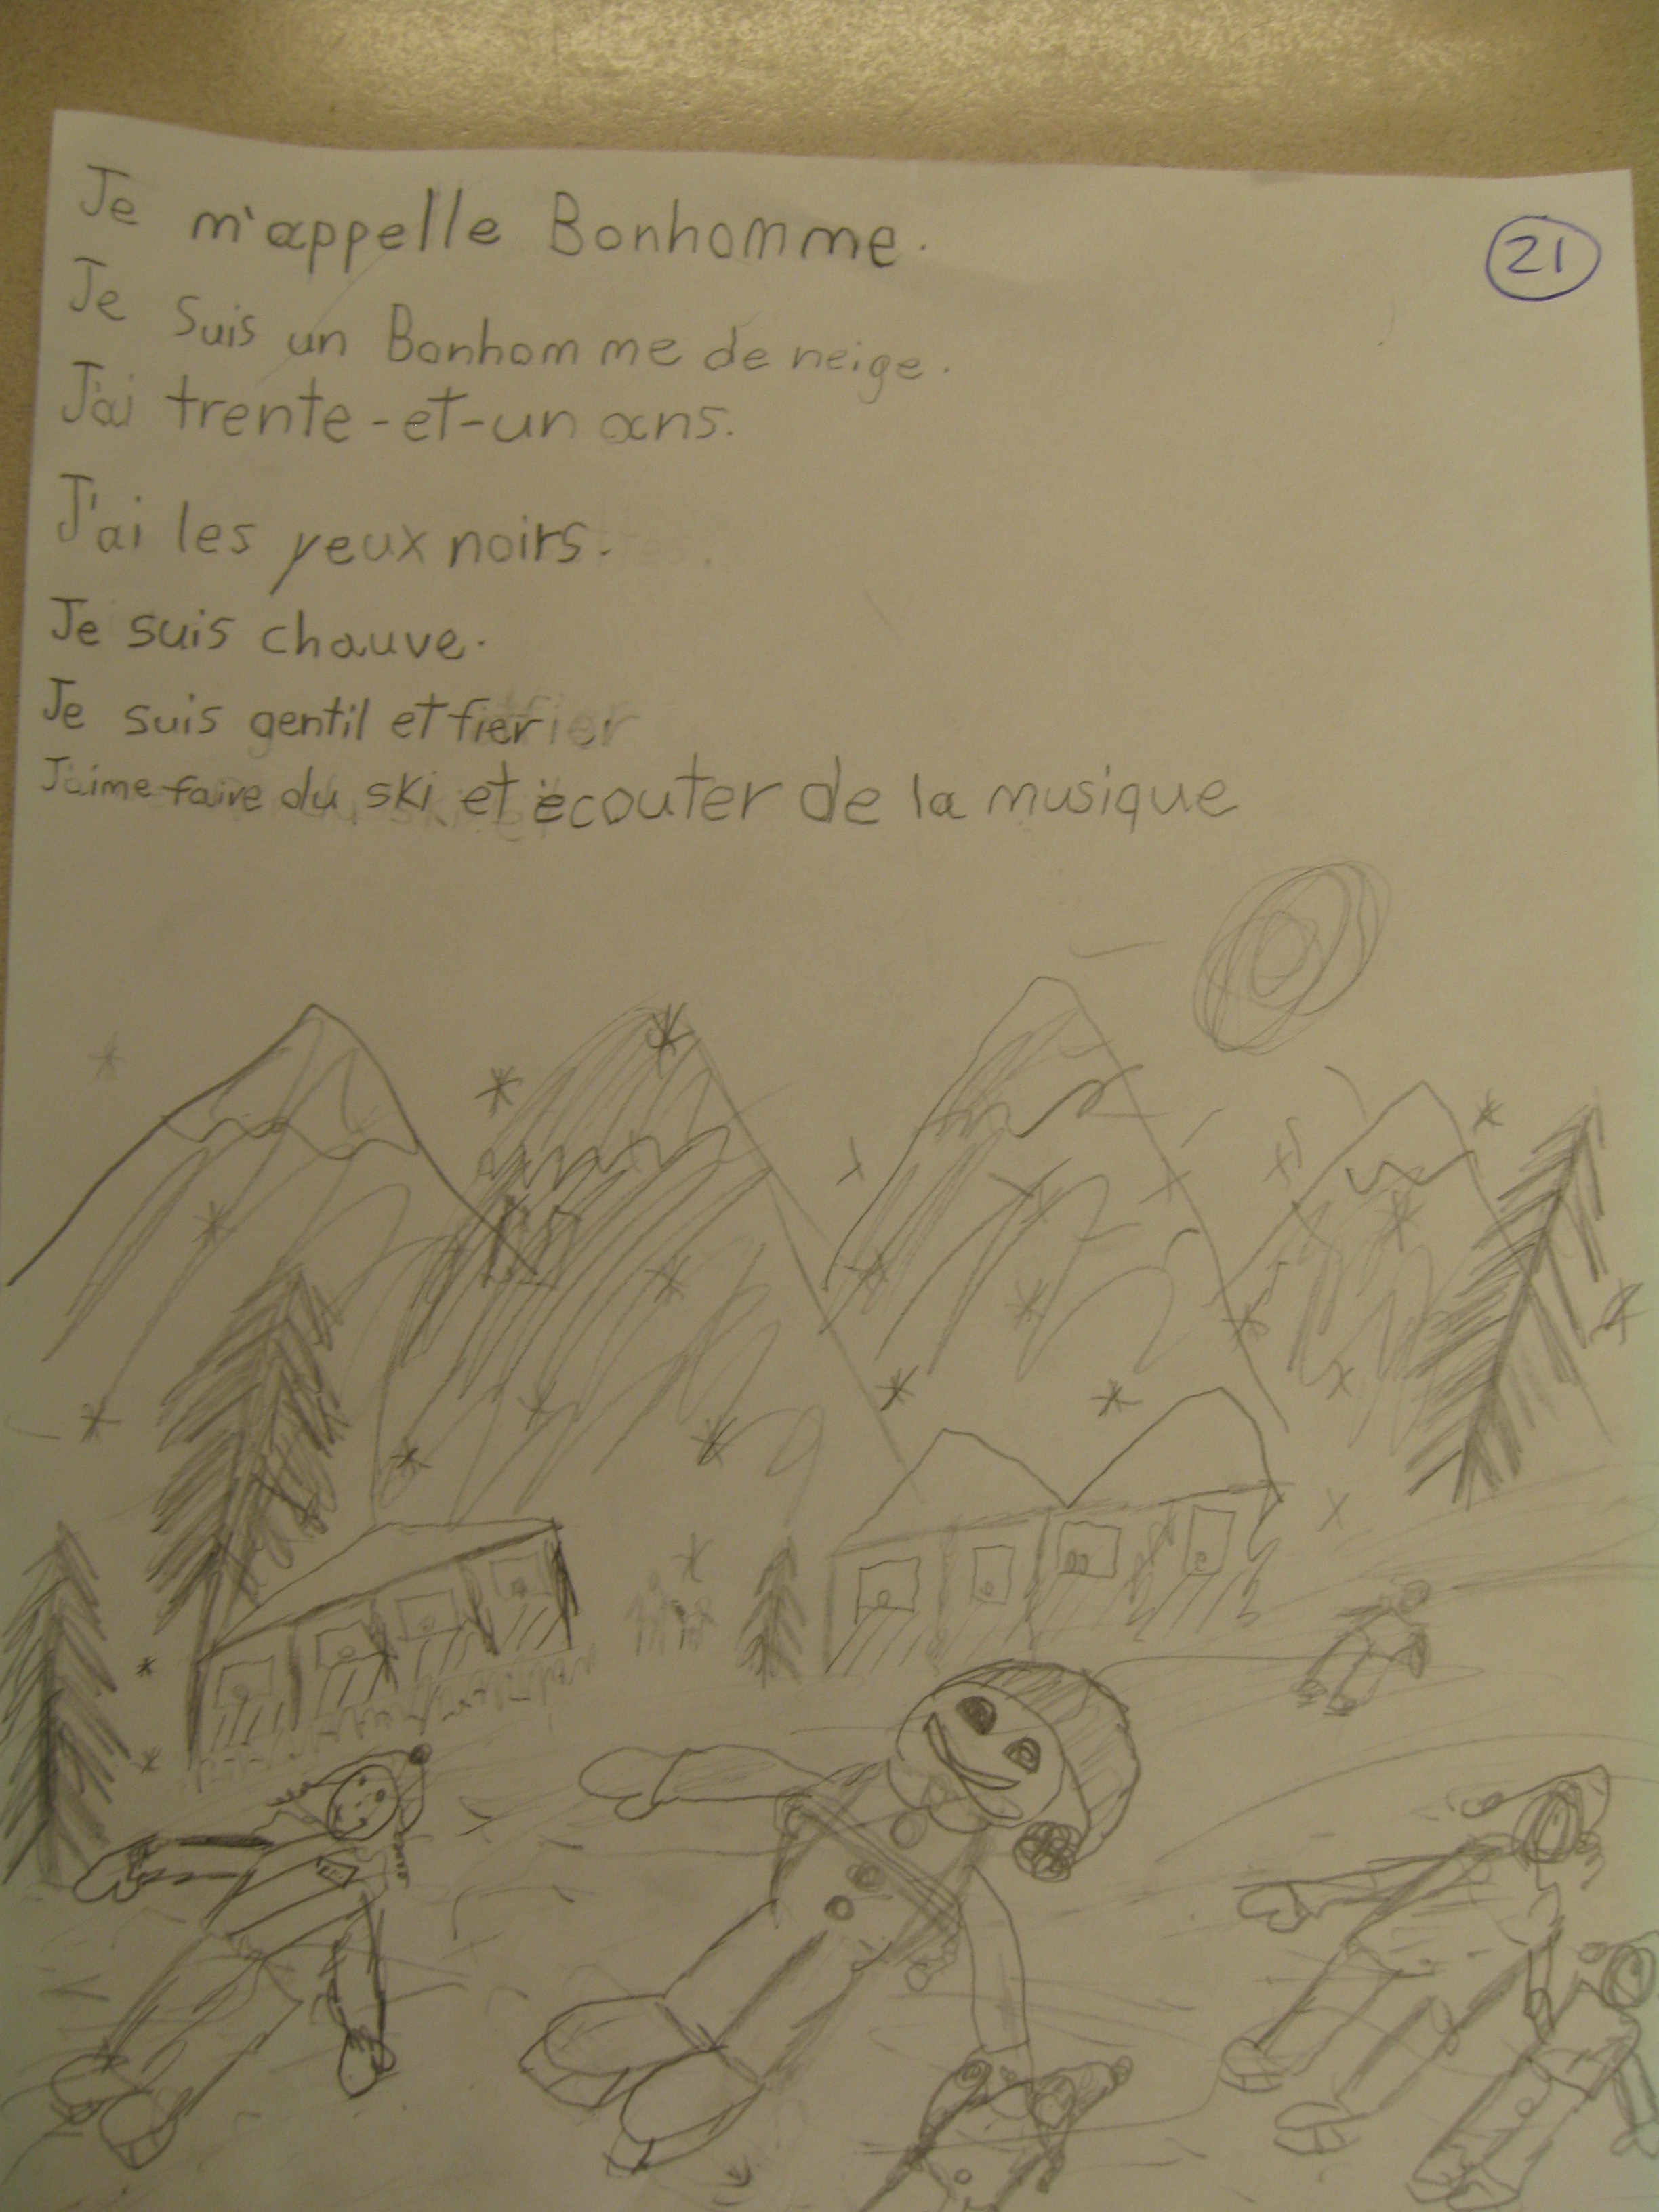 Je m'appelle Bonhomme.
21
Je suis un Bonhomme de neige.
J'ai trente-et-un ans.
J'ai les yeux noirs.
Je suis chauve.
Je suis gentil et fier
J'aime faire du ski et écouter de la musique